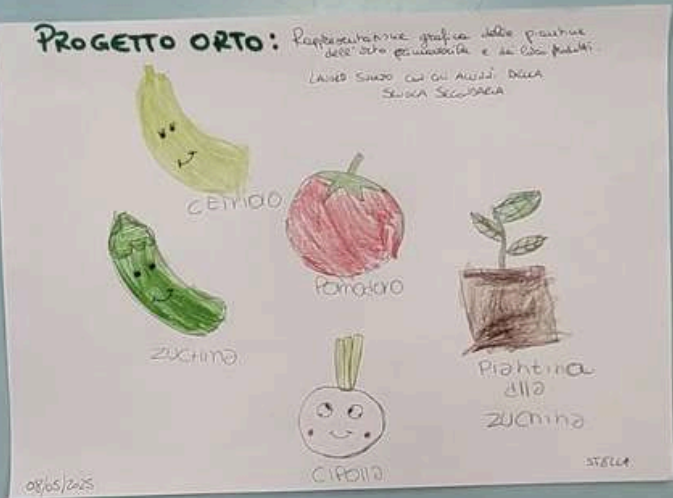 PROGETTO ORTO: Rappresentazione grafica delle piantine
dell'orto e dei loro prodotti.
LAVORO SVOLTO CON GLI ALUNNI DELLA
SCUOLA SECONDARIA
CETRIOLO
Pomodoro
ZUCHINA
Piantina
dlla
ZUChina
CIPOlla
STELLA
08/05/2025